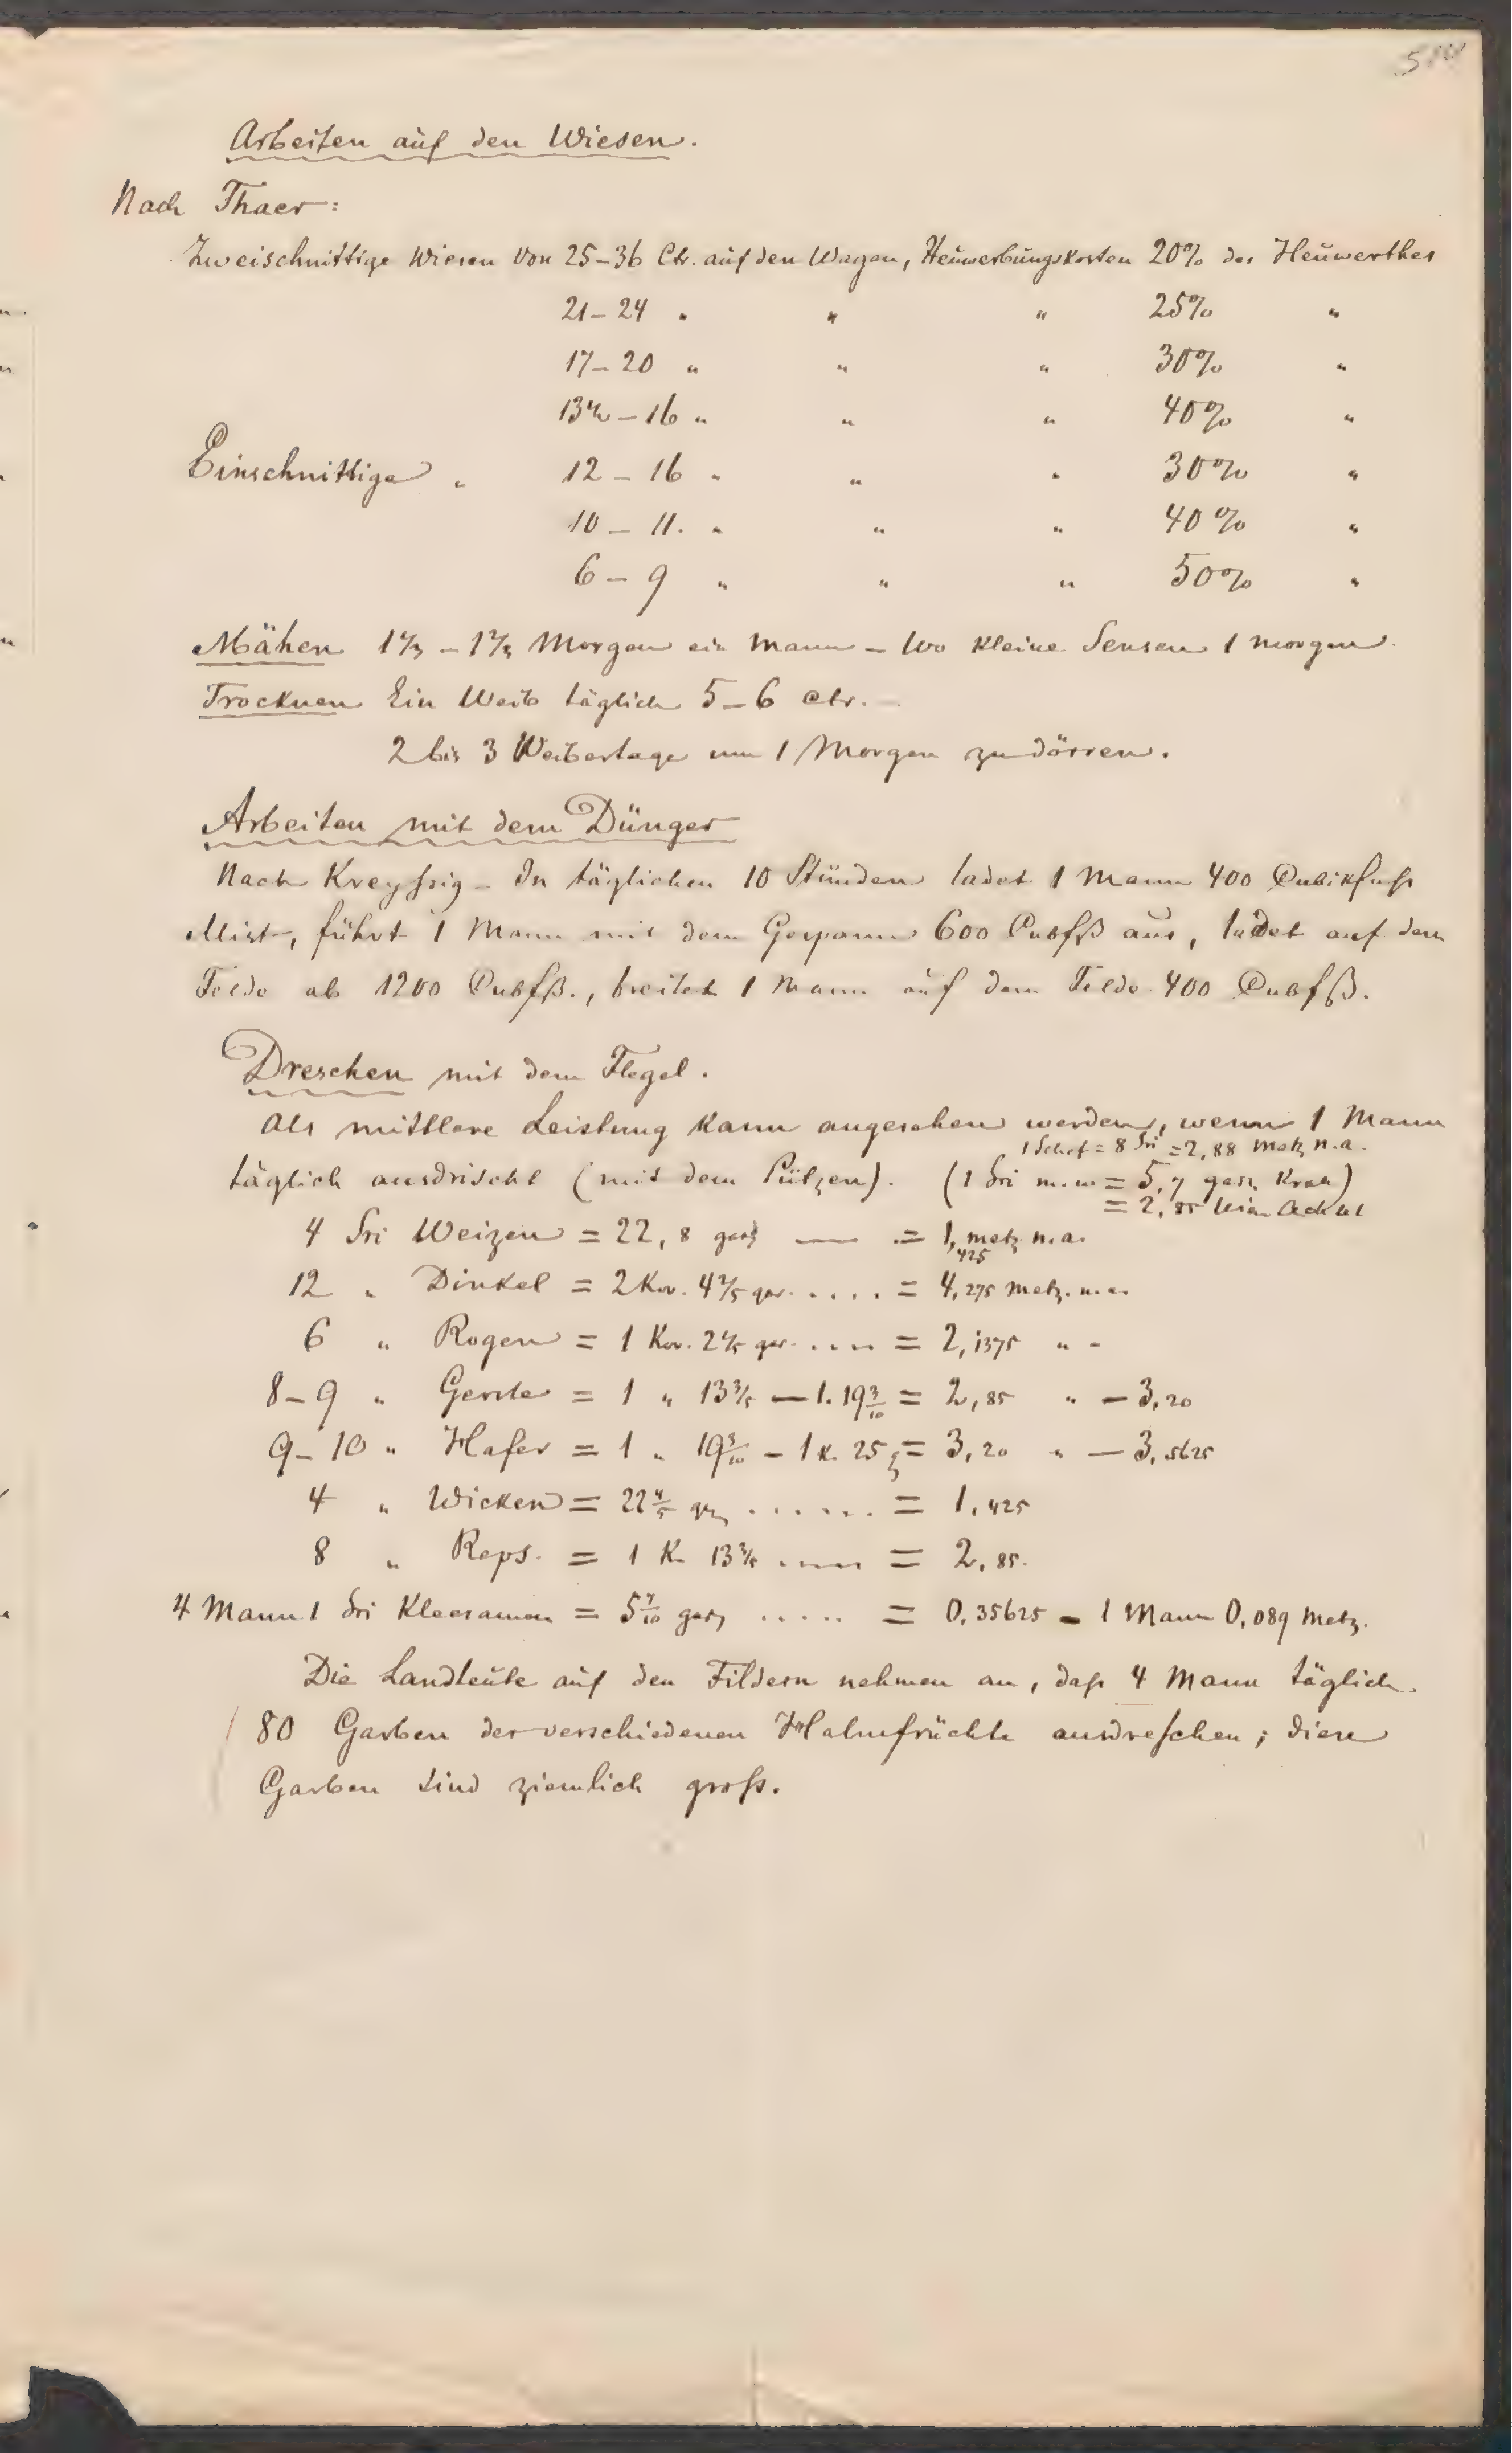 Arbeiten auf den Wiesen.
Nach Thaer:
Zweischnittige Wiesen von 25–36 Ctr. auf den Wagen, Heuwerbungskosten 20% des Heuwerthes
21–24 " " " 25% "
17–20 " " " 30% "
13½–16 " " " 40% "
Einschnittige " 12–16 " " " 30% "
10–11. " " " 40% "
6–9 " " " 50% "
Mähen 1⅓–1⅔ Morgen ein Mann – wo kleine Sensen 1 Morgen
Trocknen Ein Weib täglich 5–6 Ctr. –
2 bis 3 Weibertage um 1 Morgen zu dörren.
Arbeiten mit dem Dünger
Nach Kreyssig – In täglichen 10 Stunden ladet 1 Mann 400 Cubikfuß
Mist, führt 1 Mann mit dem Gespann 600 Cubfß aus, ladet auf dem
Felde ab 1200 Cubfß., breitet 1 Mann auf dem Felde 400 Cubfß.
Dreschen mit dem Flegel.
Als mittlere Leistung kann angesehen werden, wenn 1 Mann
1 Schef = 8 Sri = 2,88 Metz n.a.
täglich ausdrischt (mit dem Putzen). (1 Sri = 5,7 garz Krak)
= 2,85
4 Sri Weizen = 22,8 garz — = 1,425 metz n.a.
12 " Dinkel = 2 Kor. 4⅖ gar. .... = 4,275 Metz. n.a.
6 " Rogen = 1 Kor. 2⅕ gar. .... = 2,1375 " "
8–9 " Gerste = 1 " 13⅗ — 1. 19 3/10 = 2,85 " — 3,20
9–10 " Hafer = 1 " 19 3/10 – 1 K. 25 = 3,20 " — 3,5625
4 " Wicken = 22⅘ garz ...... = 1,425
8 " Reps. = 1 K 13⅗ .... = 2,85.
4 Mann 1 Sri Kleesamen = 5 7/10 garz ..... = 0,35625 – 1 Mann 0,089 Metz.
Die Landleute auf den Fildern nehmen an, daß 4 Mann täglich
80 Garben der verschiedenen Halmfrüchte ausdreschen; diese
Garben sind ziemlich groß.